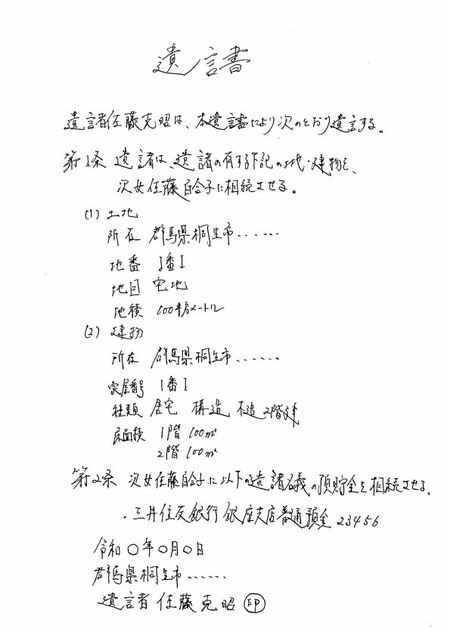 遺言書
遺言者佐藤克昭は、本遺言書により次のとおり遺言する。
第1条 遺言者は、遺言者の有する下記の土地・建物を、
次女佐藤百合子に相続させる。
(1) 土地
所在 群馬県桐生市......
地番 1番1
地目 宅地
地積 100平方メートル
(2) 建物
所在 群馬県桐生市......
家屋番号 1番1
種類 居宅 構造 木造2階建
床面積 1階 100㎡
2階 100㎡
第2条 次女佐藤百合子に以下の遺言者名義の預貯金を相続させる。
・三井住友銀行 銀座支店 普通預金 23456
令和○年○月○日
群馬県桐生市......
遺言者 佐藤克昭 印